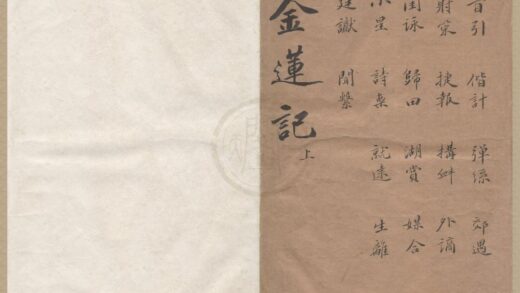 首引 偕計 彈絲 郊遇
射策 捷報 搆衅 外謫
閨詠 歸田 湖賞 媒合
小星 詩案 就逮 生離
廷讞 閒繫
金蓮記 上